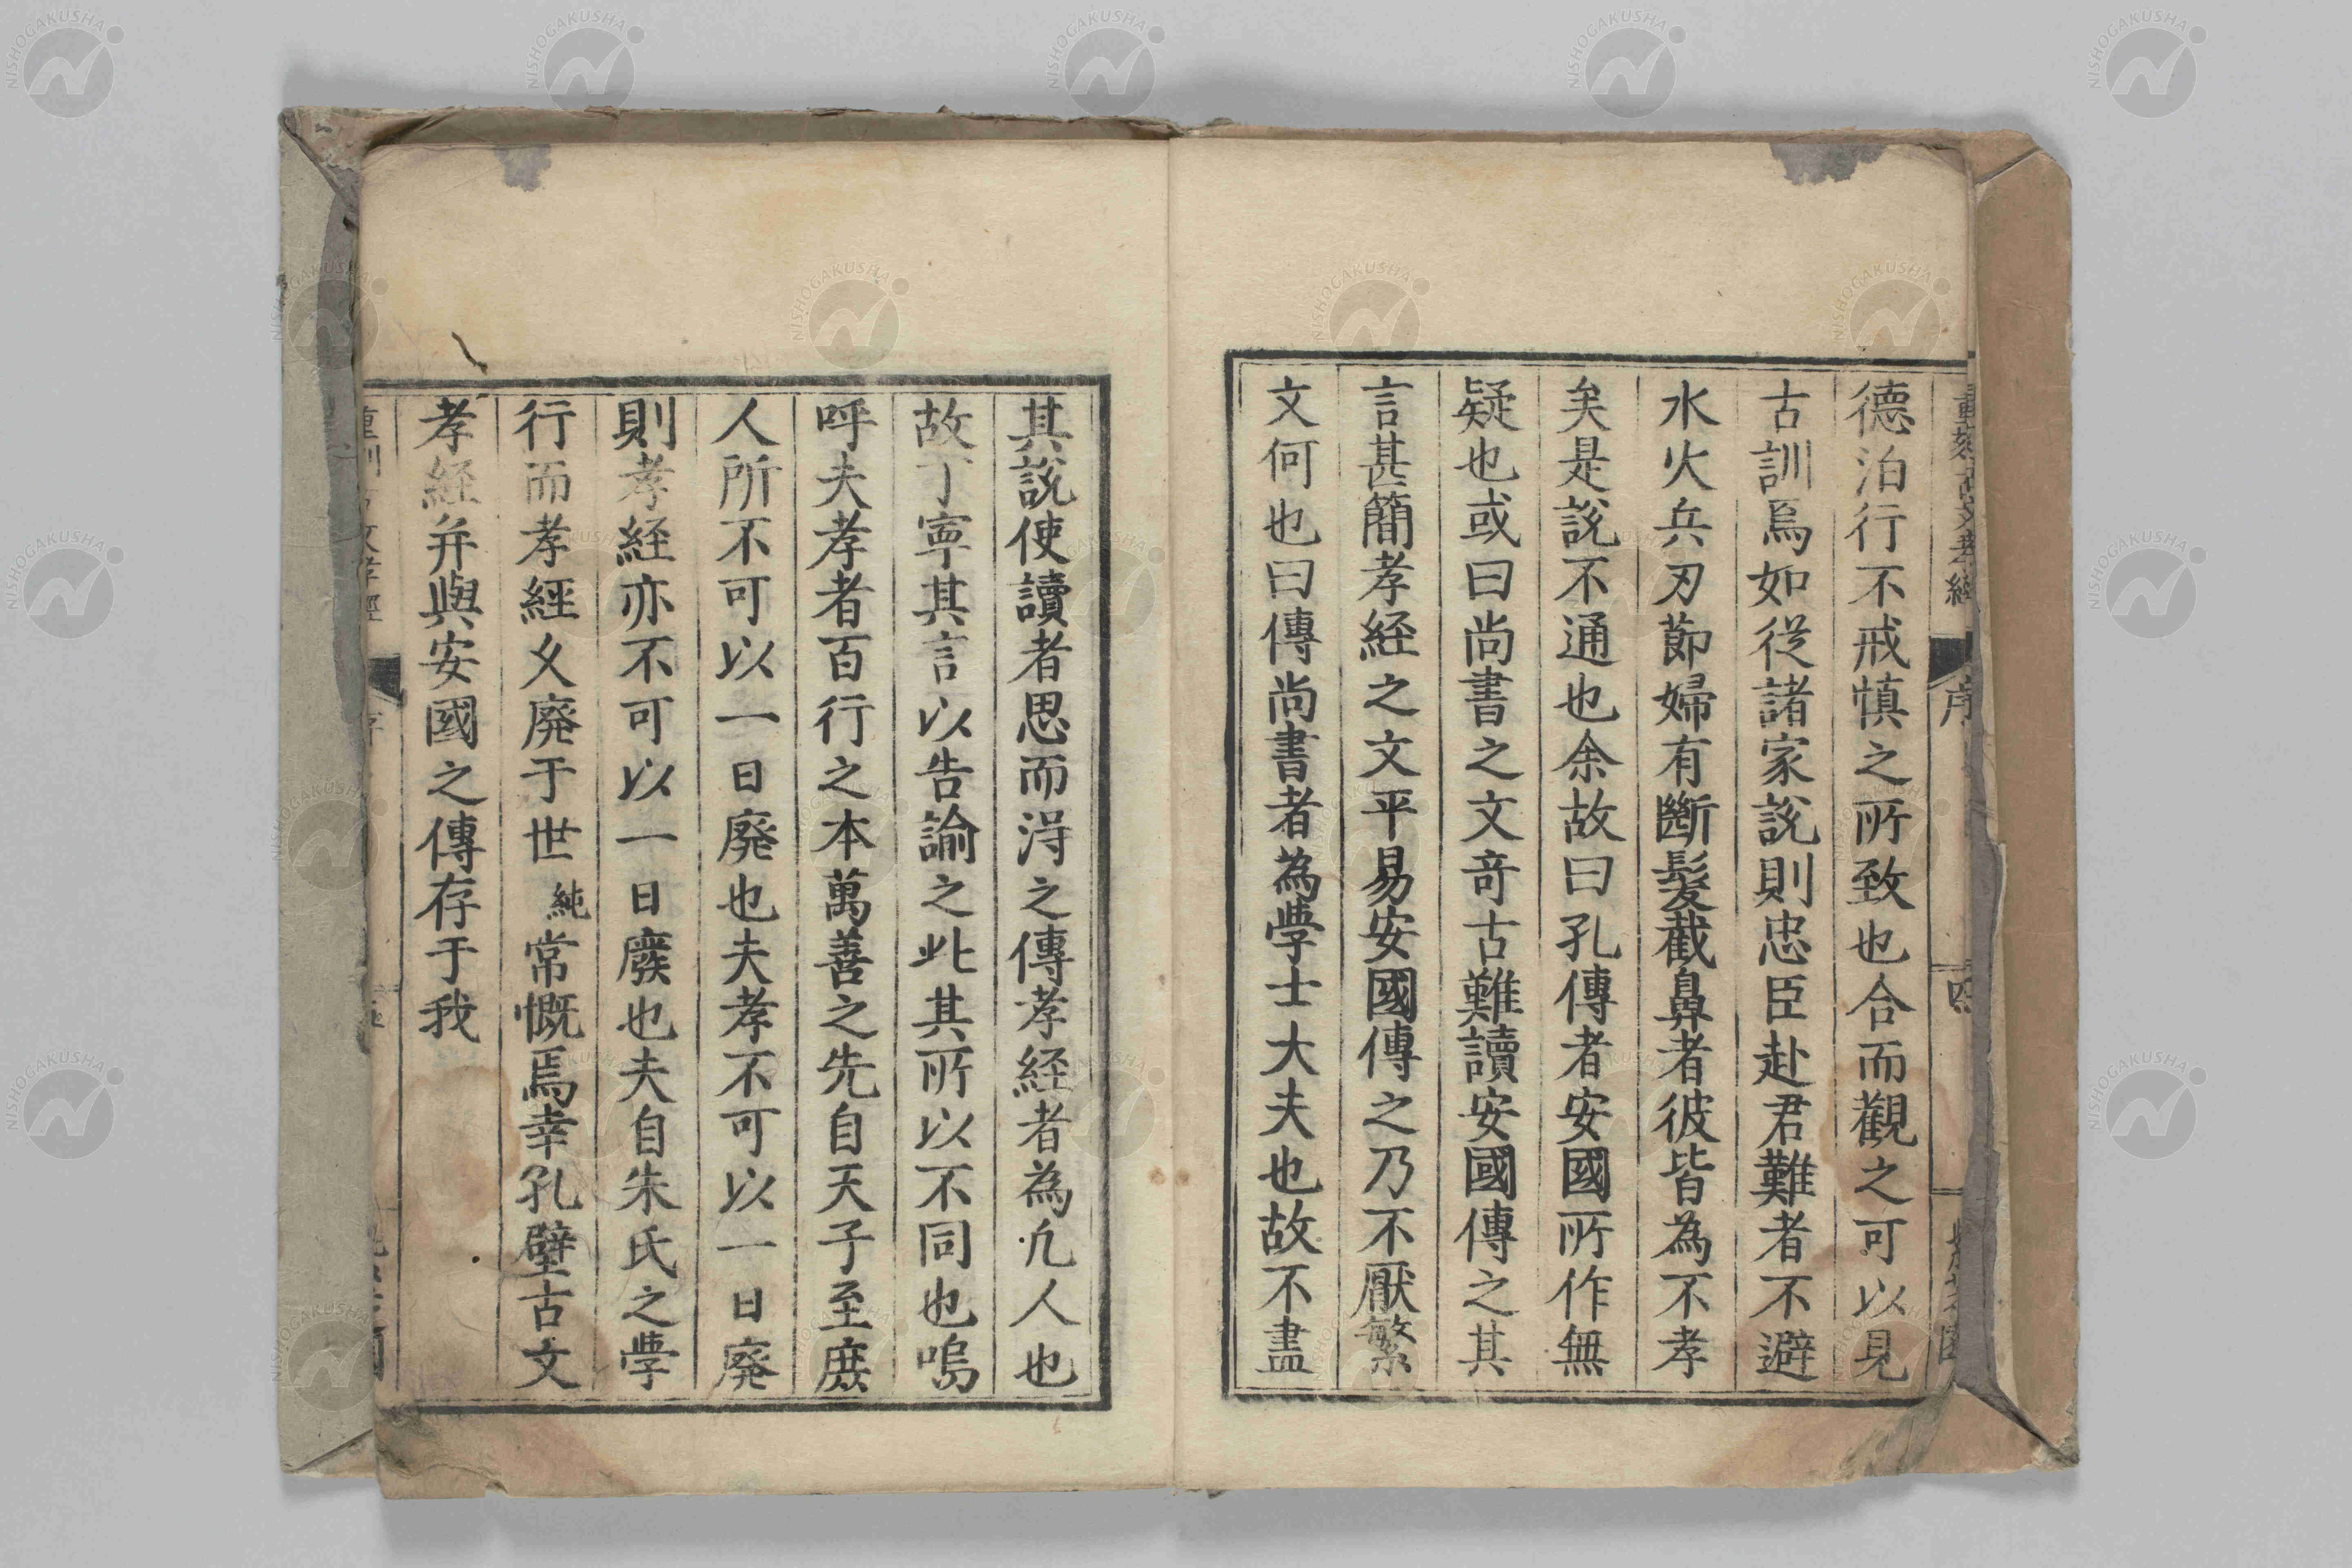 德泊行不戒慎之所致也合而觀之可以見
古訓焉如從諸家說則忠臣赴君難者不避
水火兵刃節婦有斷髮截鼻者彼皆為不孝
矣是說不通也余故曰孔傳者安國所作無
疑也或曰尚書之文奇古難讀安國傳之其
言甚簡孝経之文平易安國傳之乃不厭繁
文何也曰傳尚書者為學士大夫也故不盡
其說使讀者思而淂之傳孝経者為凢人也
故丁寧其言以告諭之此其所以不同也嗚
呼夫孝者百行之本萬善之先自天子至庶
人所不可以一日廢也夫孝不可以一日廢
則孝経亦不可以一日廢也夫自朱氏之學
行而孝經久廢于世純常慨焉幸孔壁古文
孝経并與安國之傳存于我
序
NISHOGAKUSHA